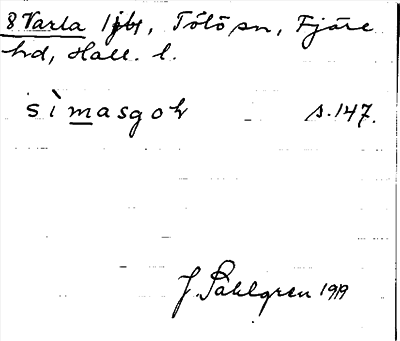 8 Varla 1 jbr, Tölö sn, Fjäre
hd, Hall. l.
sìmasgok s. 147.
J. Sahlgren 1919